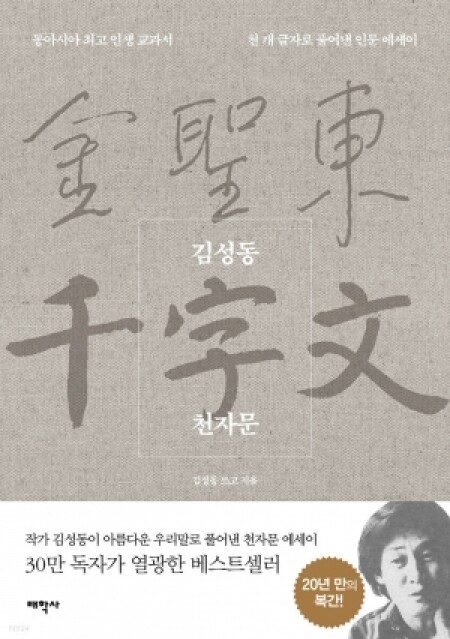 동아시아 최고 인생 교과서
천 개 글자로 풀어낸 인문 에세이
金聖東
김성동
千字文
천자문
김성동 쓰고 지음
작가 김성동이 아름다운 우리말로 풀어낸 천자문 에세이
30만 독자가 열광한 베스트셀러
20년 만의
복간!
태학사